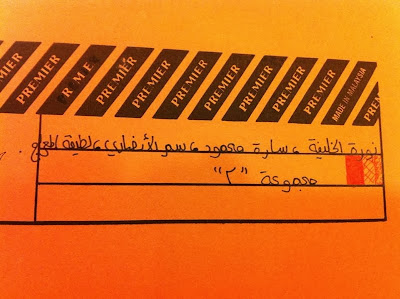 MIER PREMIER PREMIER PREMIER PREMIER PREMIER PREMIER PREMIER MADE IN MALAYSIA PRE
نورة الخليفة ، سارة محمود ، سمر الأنصاري ، لطيفة
مجموعة "٢"